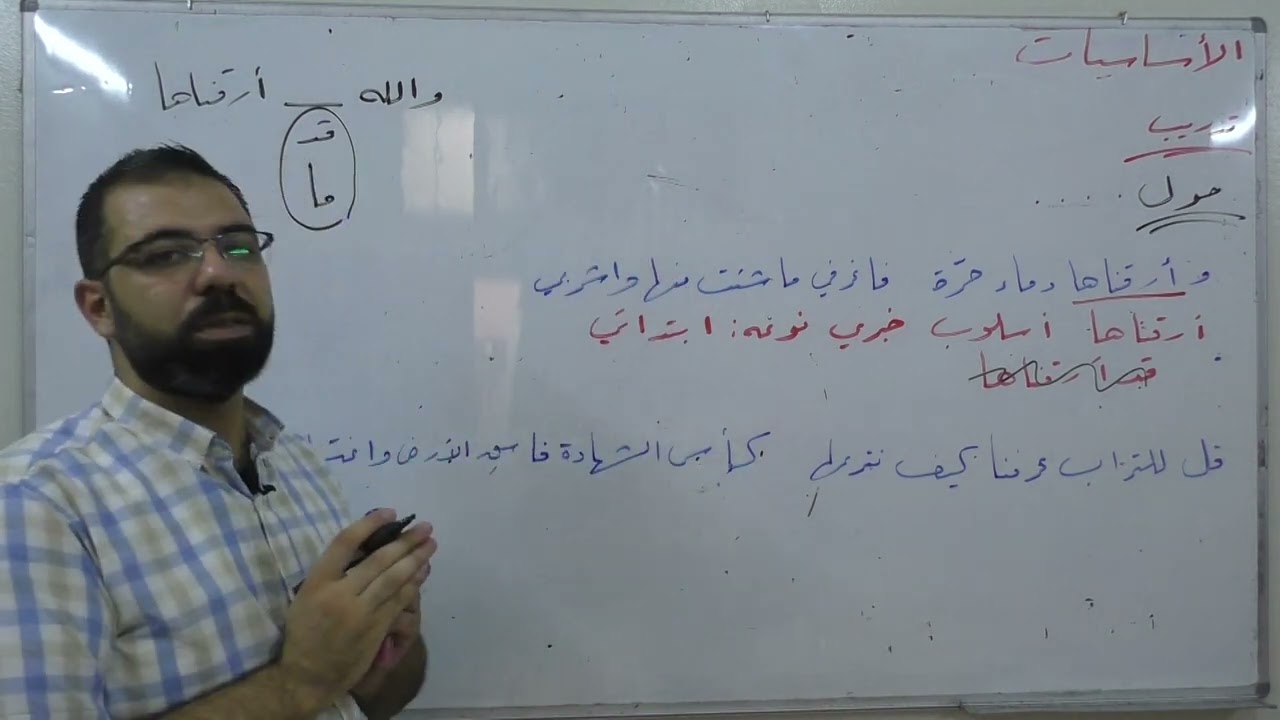 الأساسيات
تدريب
حول .....
والله __ أرقناها
قد
ما
و أرقناها دماء حرّة فاغرفي ما شئت منها واشربي
أرقناها أسلوب خبري نوعه: ابتدائي
قد أرقناها
قل للتراب عرفنا كيف نترعها بكأس الشهادة فاسعد الأرض